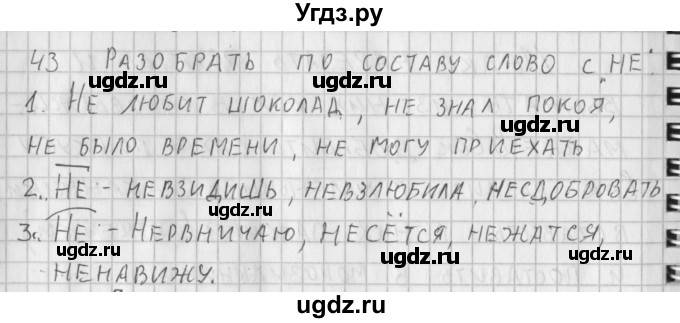 Угдз.ру
43 РАЗОБРАТЬ ПО СОСТАВУ СЛОВО С „НЕ".
1. НЕ ЛЮБИТ ШОКОЛАД, НЕ ЗНАЛ ПОКОЯ,
НЕ БЫЛО ВРЕМЕНИ, НЕ МОГУ ПРИЕХАТЬ
2. НЕ - НЕВЗИДИШЬ, НЕВЗЛЮБИЛА, НЕСДОБРОВАТЬ
3. НЕ - НЕРВНИЧАЮ, НЕСЁТСЯ, НЕЖАТСЯ,
НЕНАВИЖУ.
ugdz.ru
ugdz.ru
ugdz.ru
ugdz.ru
ugdz.ru
ugdz.ru
ugdz.ru
ugdz.ru
ugdz.ru
ugdz.ru